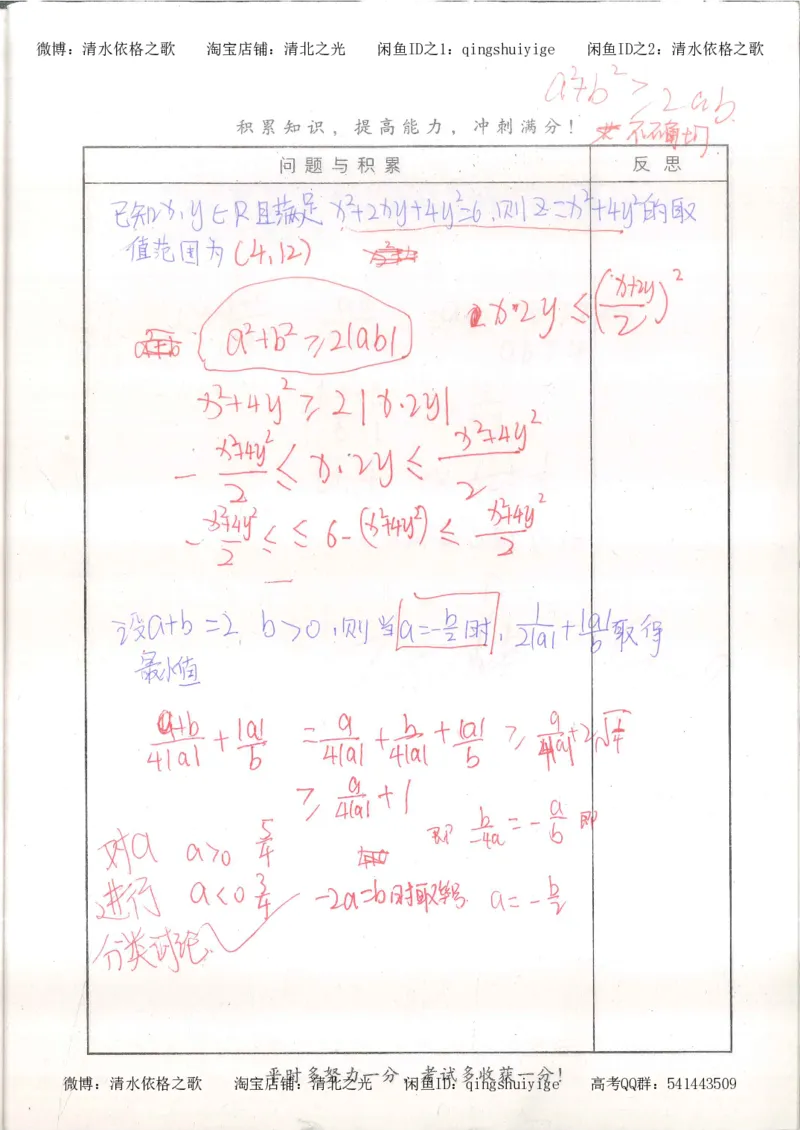 微博：清水依格之歌 淘宝店铺：清北之光 闲鱼ID之1：qingshuiyige 闲鱼ID之2：清水依格之歌
a²+b²≥2ab
积累知识，提高能力，冲刺满分！
不确切
问题与积累 反思
已知x,y∈R且满足x²+2xy+4y²=6,则z=x²+4y²的取
值范围为(4,12)
2x·2y≤(x+2y/2)²
a²+b²≥2|ab|
x²+4y²≥2|x·2y|
-x²+4y²/2≤x·2y≤x²+4y²/2
-x²+4y²/2≤≤6-(x²+4y²)≤x²+4y²/2
设a+b=2,b>0,则当a=-b/2时,1/2|a|+|a|/b取得
最小值
a+b/4|a|+|a|/b=a/4|a|+b/4|a|+|a|/b≥a/4|a|+2√1/4
≥a/4|a|+1
即b/-4a=-a/b即
对a a>0 5/4
进行 a<0 3/4 -2a=b时取等号 a=-b/2
分类讨论
平时多努力一分，考试多收获一分！
微博：清水依格之歌 淘宝店铺：清北之光 闲鱼ID：qingshuiyige 高考QQ群：541443509